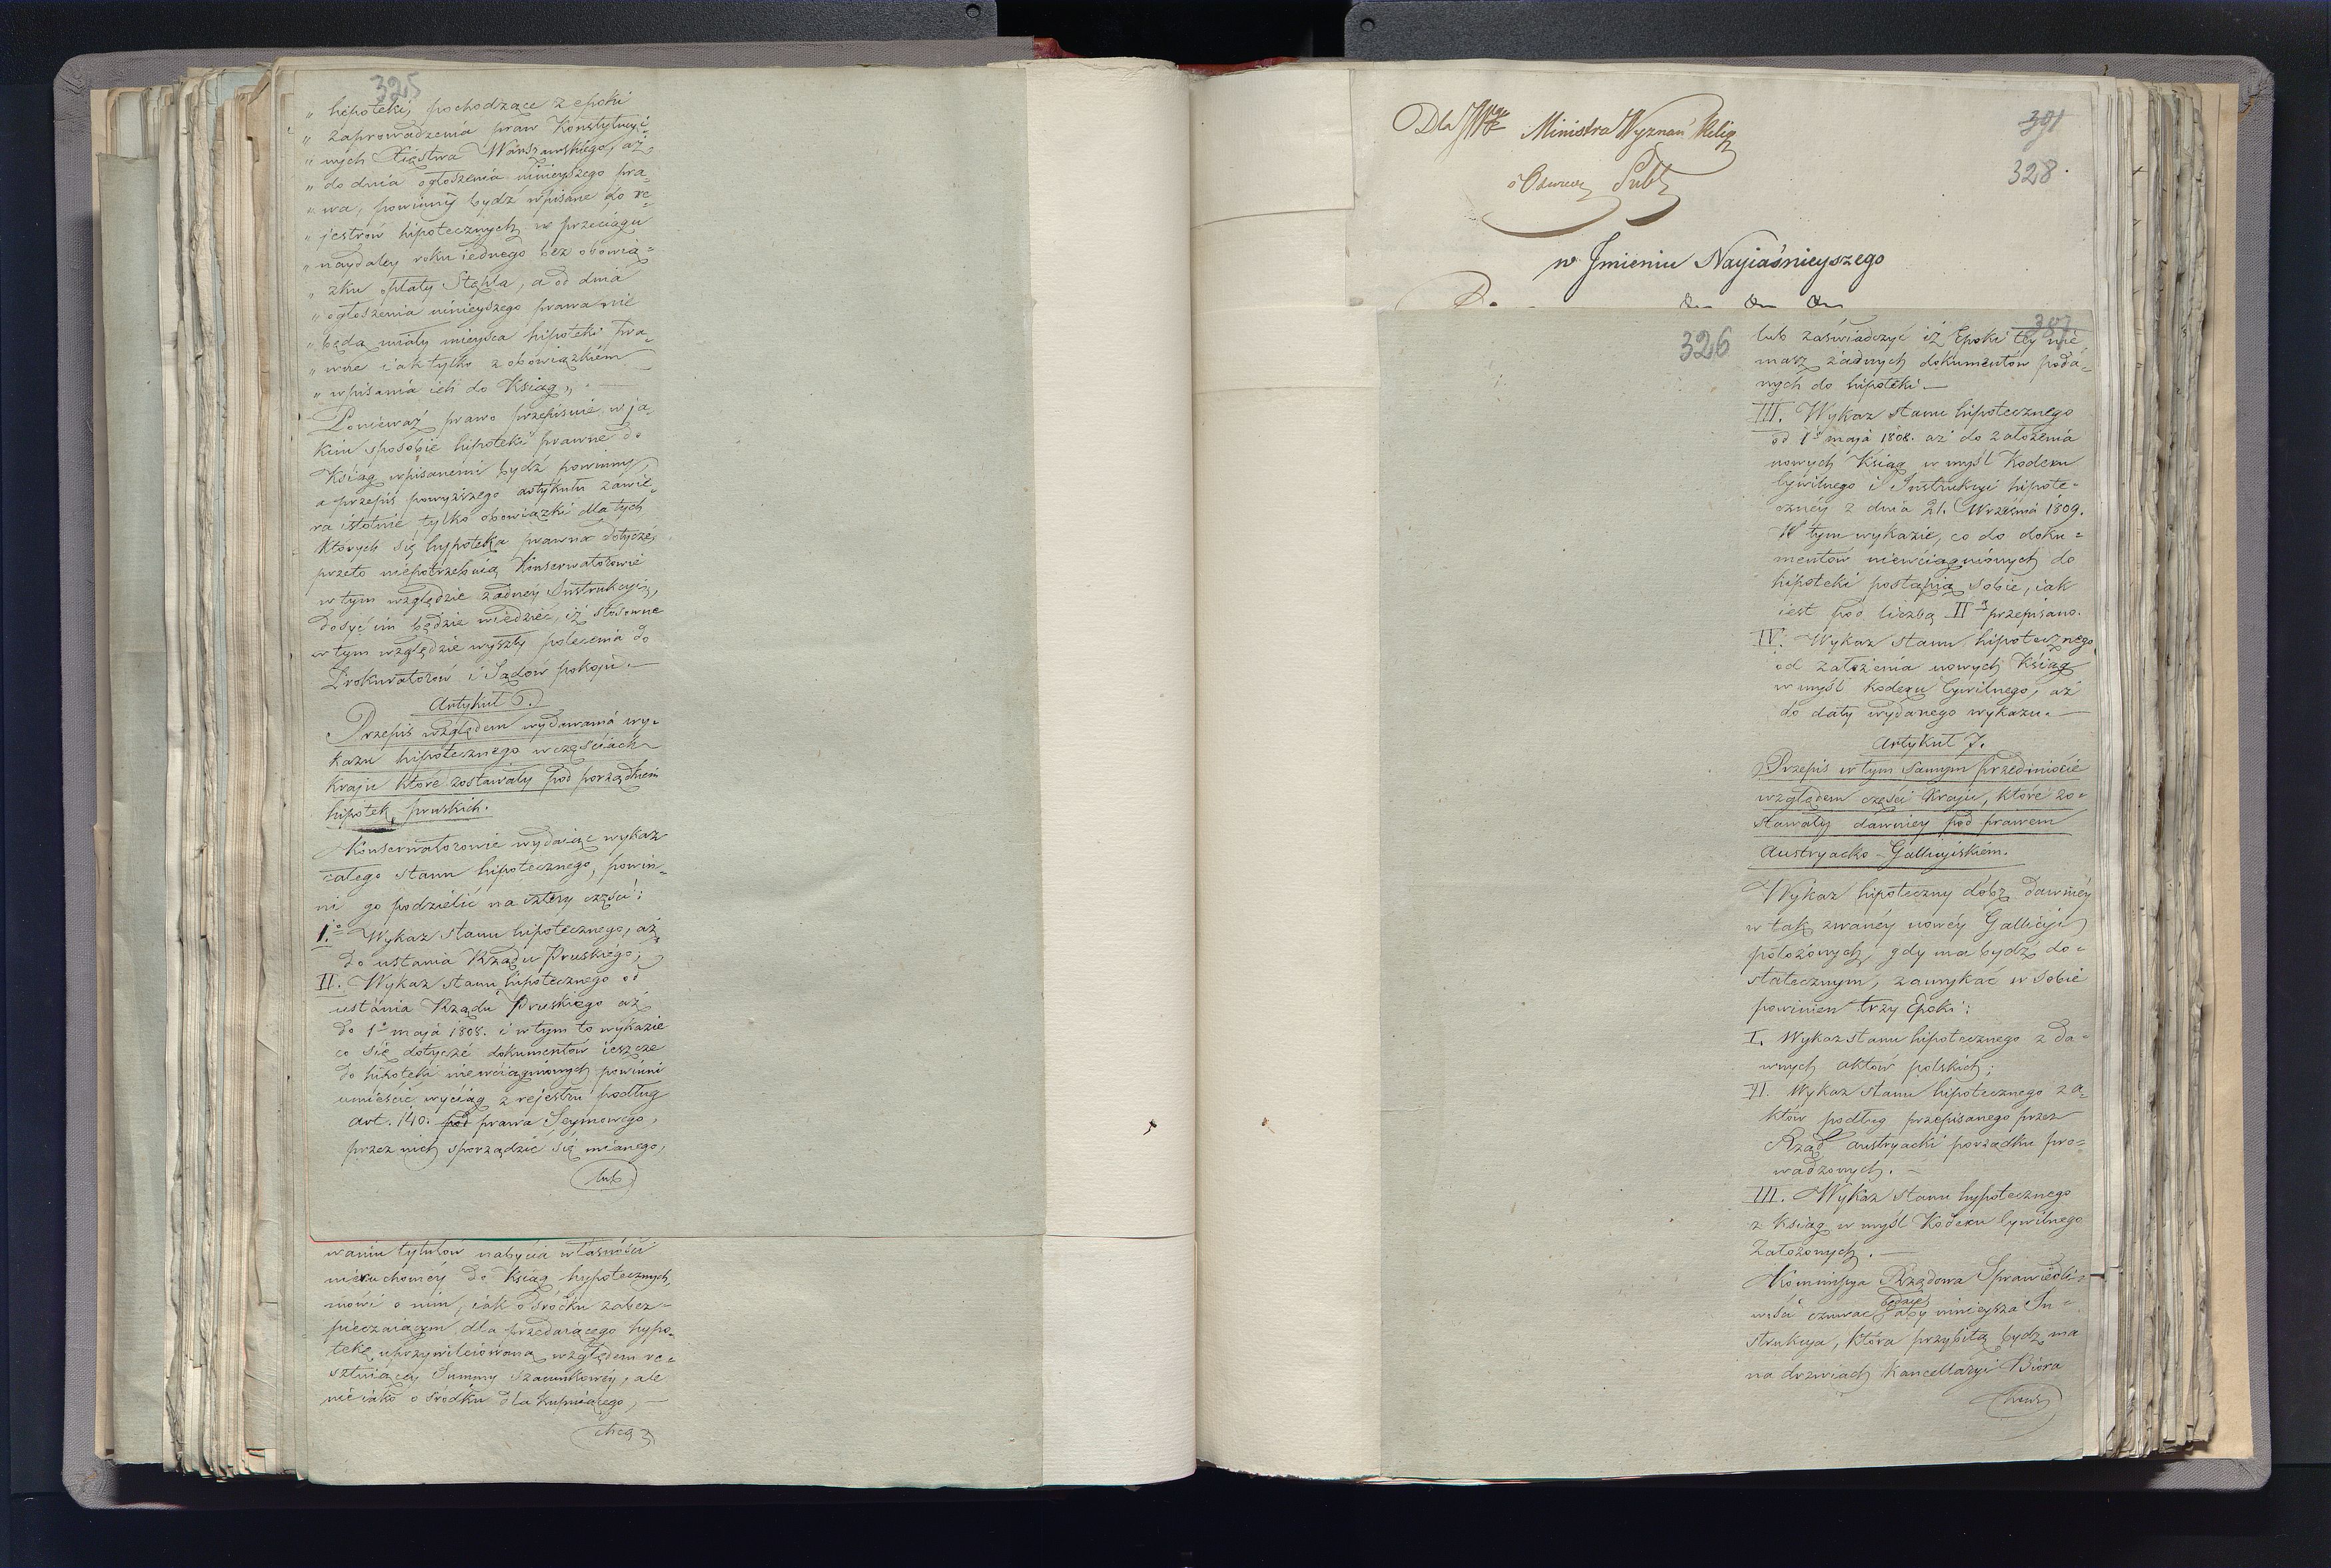 325
„ hipoteki, pochodzące z epoki
„ zaprowadzenia praw Konstytucyi-
„ nych Xięstwa Warszawskiego, aż
„ do dnia ogłoszenia ninieyszego pra-
„ wa, powinny bydź wpisane do re-
„ jestrów hipotecznych w przeciągu
„ naydaley roku iednego bez obowią-
„ zku opłaty Stępla, a od dnia
„ ogłoszenia ninieyszego prawa nie
„ będą miały mieysca hipoteki pra-
„ wne iak tylko z obowiązkiem
„ wpisania ich do Ksiąg„ —
Ponieważ prawo przepisuie w ja-
kim sposobie hipoteki prawne do
Ksiąg wpisanemi bydź powinny,
a przepis powyższego artykułu zawie-
ra istotnie tylko obowiązki dla tych
których się hypoteka prawna dotycze,
przeto niepotrzebuią Konserwatorowie
w tym względzie żadney Instrukcyi,
dosyć im będzie wiedzieć, iż stosowne
w tym względzie wyszły polecenia do
Prokuratorów i Sądów pokoju. —
Artykuł 6.
Przepis względem wydawania wy-
kazu hipotecznego w częściach
Kraju które zostawały pod porządkiem
hipotek pruskich.
Konserwatorowie wydaiąc wykaz
całego stanu hipotecznego, powin-
ni go podzielić na cztery części:
I.o Wykaz stanu hipotecznego, aż
do ustania Rządu Pruskiego;
II. Wykaz stanu hipotecznego od
ustania Rządu Pruskiego aż
do 1o maja 1808. i w tym to wykazie
co się dotycze dokumentów ieszcze
do hipoteki niewciągnionych powinni
umieścić wyciąg z rejestru podług
art. 140. pod prawa Seymowego,
przez nich sporządzić się mianego,
lub
waniu tytułów nabycia własności
nieruchomey do Ksiąg hypotecznych,
mówi o nim, iak o środku zabez-
pieczaiącym dla przedaiącego hypo-
tekę uprzywileiowaną względem re-
sztuiącey Summy szacunkowey, ale
nie iako o środku dla kupuiącego, —
chcą
Dla JW Ministra Wyznań Relig
i Oświec Publ
391
328.
w Jmieniu Nayiaśnieyszego
326
387
lub zaświadczyć iż Epoki tey nie
masz żadnych dokumentów poda-
nych do hipoteki —
III. Wykaz stanu hipotecznego
od 1o maja 1808. aż do założenia
nowych Ksiąg w myśl Kodexu
Cywilnego i Instrukcyi hipote-
czney z dnia 21. Września 1809.
W tym wykazie, co do doku-
mentów niewciągnionych do
hipoteki postąpią sobie, iak
iest pod liczbą II przepisano.
IV. Wykaz stanu hipotecznego
od założenia nowych Ksiąg
w myśl Kodexu Cywilnego, aż
do daty wydanego wykazu. —
Artykuł 7.
Przepis w tym samym przedmiocie
względem części Kraju, które zo-
stawały dawniey pod prawem
Austryacko-Gallicyiskiem.
Wykaz hipoteczny dóbr dawniey
w tak zwaney nowey Gallicyi
położonych, gdy ma bydź do-
statecznym, zamykać w sobie
powinien trzy Epoki:
I. Wykaz stanu hipotecznego z da-
wnych aktów polskich;
II. Wykaz stanu hipotecznego z a-
któw podług przepisanego przez
Rząd austryacki porządku pro-
wadzonych. —
III. Wykaz stanu hypotecznego
z Ksiąg w myśl Kodexu Cywilnego
Założonych. —
Kommissya Rządowa Sprawiedli-
wości czuwać będzie aby ninieysza In-
strukcya, która przybitą bydź ma
na drzwiach Kancellaryi Bióra